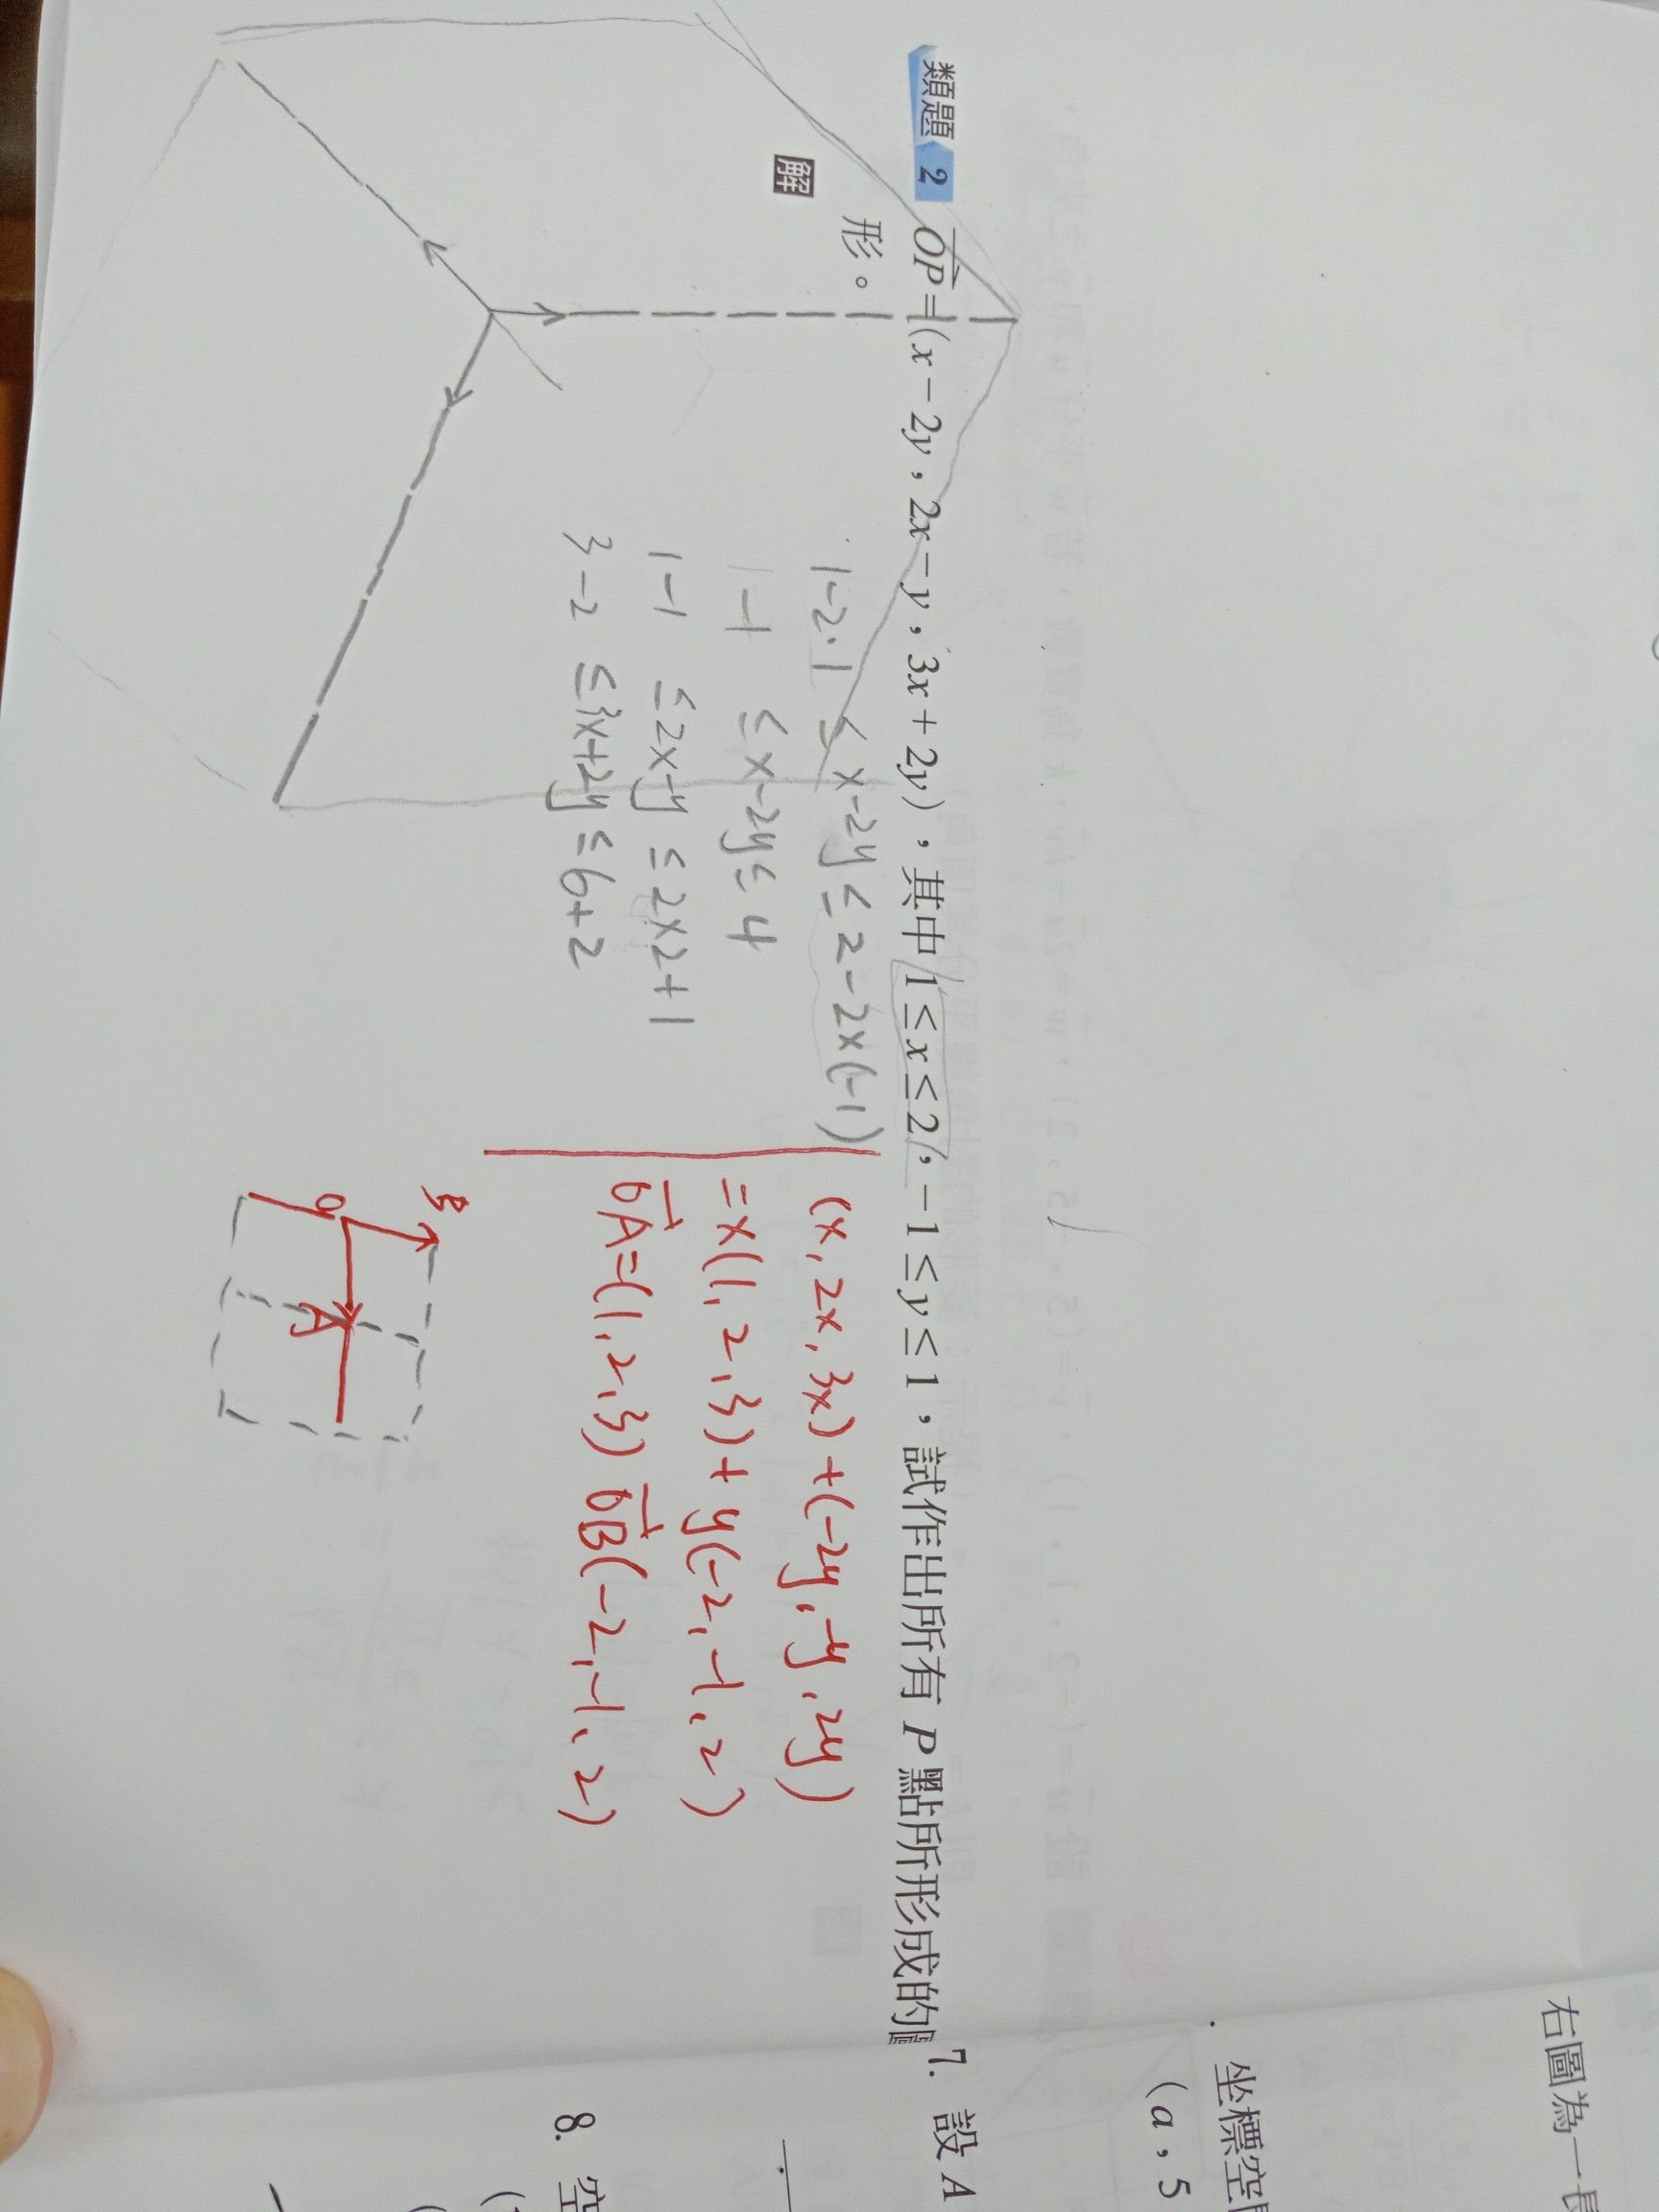 類題 2 OP=(x-2y, 2x-y, 3x+2y), 其中 1≤x≤2, -1≤y≤1, 試作出所有 P 點所形成的圖
形。
解
1-2·1 ≤ x-2y ≤ 2-2×(-1)
1-1 ≤ x-2y ≤ 4
1-1 ≤ 2x-y ≤ 2×2+1
3-2 ≤ 3x+2y ≤ 6+2
(x, 2x, 3x)+(-2y, -y, 2y)
=x(1, 2, 3)+y(-2, -1, 2)
OA=(1, 2, 3) OB(-2, -1, 2)
B
O
A
右圖為一長
坐標空
(a, 5
7. 設 A
8. 空